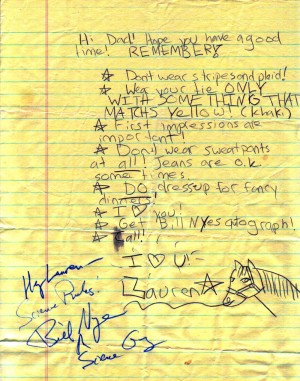 Hi Dad! Hope you have a good
time! REMEMBER!
☆ Don't wear stripes and plaid!
☆ Wear your tie ONLY
WITH SOMETHING THAT
MATCHS Yellow! (khaki)
☆ First impressions are
important!
☆ Don't wear sweatpants
at all! Jeans are o.k.
some times.
☆ DO dress up for fancy
dinners!
☆ I ♡ you!
☆ Get Bill Nyes autograph!
☆ Call!
I ♡ U!
Lauren ☆
Hey Lauren
Science Rules!
Bill Nye
Science Guy